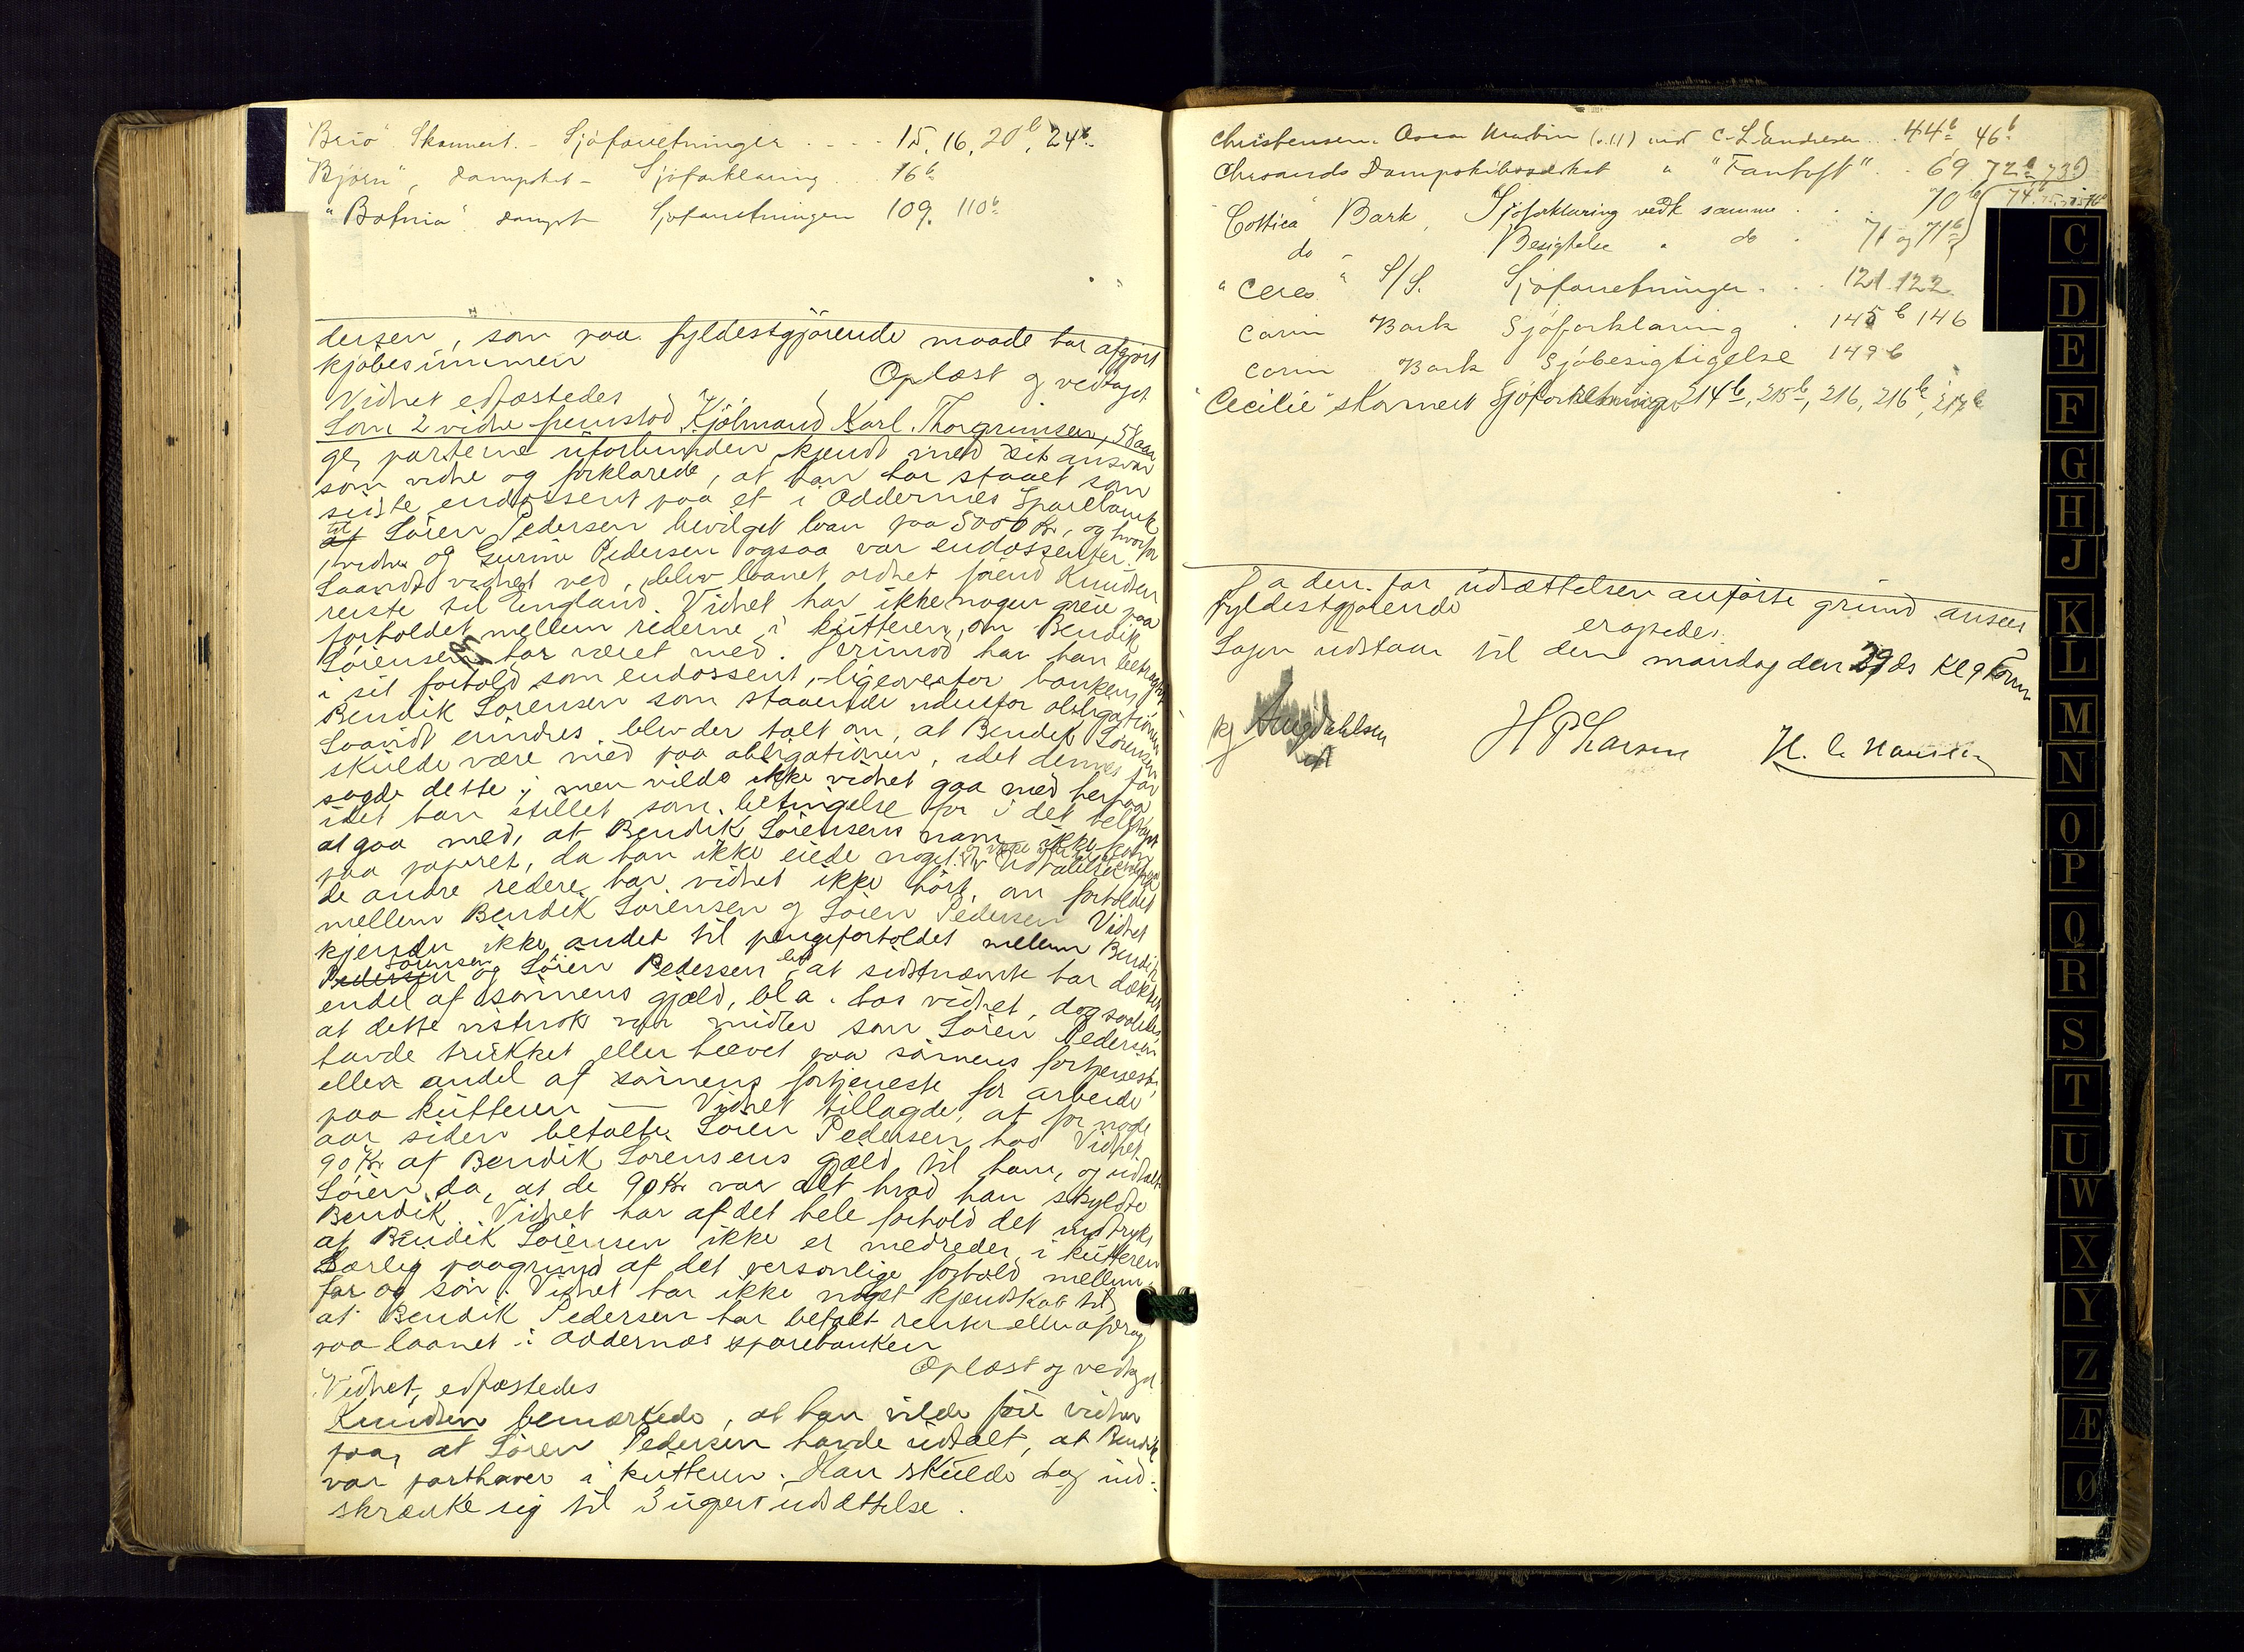 "Brio" Skonnert. - Sjøforretninger . . . . 15, 16, 20b, 24b.
"Bjørn", dampskt - Sjøforklaring . . 16b
"Botnia" dampsk Sjøforretningen 109. 110b
dersen, som paa fyldestgjørende maade har afgjort
kjøbesummen
Oplæst og vedtaget
Vidnet edfæstedes
Som 2 vidne fremstod Kjølmand Karl Thorgrimsen, 58 aar
gl, parterne uforbunden, kjendt med sit ansvar
som vidne og forklarede, at han har staaet som
sidste endossent paa et i Oddernes Sparebank
til Sören Pedersen bevilget laan paa 5000 Kr, og hvorfor
vidne og Gurine Pedersen ogsaa var endossenter.
Saavidt vidnet ved, blev laanet ordnet förend Knudsen
reiste til England. Vidnet har ikke nogen greie paa
forholdet mellem rederne i kutteren, om Bendik
Sörensen har været med. Derimod har han betragtet
i sit forhold som endossent, - ligeoverfor banken,
Bendik Sörensen som staaende udenfor obligationen
Saavidt erindres, blev der talt om, at Bendik Sörensen
skulde være med paa obligationen, idet dennes far
sagde dette; men vilde ikke vidnet gaa med herpaa
idet han stillet som betingelse for i det hele taget
at gaa med, at Bendik Sörensens navn ikke kom
paa papiret, da han ikke eiede noget.
de andre redere har vidnet ikke hört om forholdet
mellem Bendik Sörensen og Sören Pedersen Vidnet
kjender ikke andet til pengeforholdet mellem Bendik
Sörensen og Sören Pedersen end at sidstnævnte har dækket
endel af sönnens gjæld, bl a. hos vidnet, dog saaledes
at dette vistnok var midler som Sören Pedersen
havde trukket eller hævet paa sönnens fortjeneste
eller andel af sönnens fortjeneste for arbeide
paa kutteren — Vidnet tillagde, at for nogle
aar siden betalte Sören Pedersen hos Vidnet
90 Kr af Bendik Sörensens gjæld til ham, og udtalte
Sören da, at de 90 Kr var alt hvad han skyldte
Bendik. Vidnet har af det hele forhold det indtryk,
at Bendik Sörensen ikke er medreder i kutteren
særlig paagrund af det personlige forhold mellem
far og sön. Vidnet har ikke noget kjendskab til,
at Bendik Pedersen har betalt renter eller afdrag
paa laanet i Oddernæs sparebanken
Oplæst og vedtaget
Vidnet, edfæstedes
Knudsen bemærkede, at han vilde före vidner
paa, at Sören Pedersen havde udtalt, at Bendik
var parthaver i kutteren. Han skulde dog ind-
skrænke sig til 3 ugers udsættelse.
Christensen. Oscar Martin mod C. L. Andresen . . 44b, 46b
Chrsands Dampskibsselskab " "Fantoft" . . 69 72b 73b)
"Cottica" Bark, Sjøforklaring vedk samme . . . 70b
do - Besigtelse " do . 71 og 71b
"Ceres" S/S. Sjøforretninger . . . 121. 122
Carin Bark Sjøforklaring . 145b 146
Carin Bark Sjøbesigtigelse 149b
"Cecilie" skonnert Sjøforretninger 214b, 215b, 216, 216b, 217b
Da den for udsættelsen anförte grund ansees
fyldestgjørende
eragtedes:
Sagen udstaar til den mandag den 29 ds Kl 9 Form
H P Larsen H. C. Hansen
C
D
E
F
G
H
J
K
L
M
N
O
P
Q
R
S
T
U
W
X
Y
Z
Æ
Ø